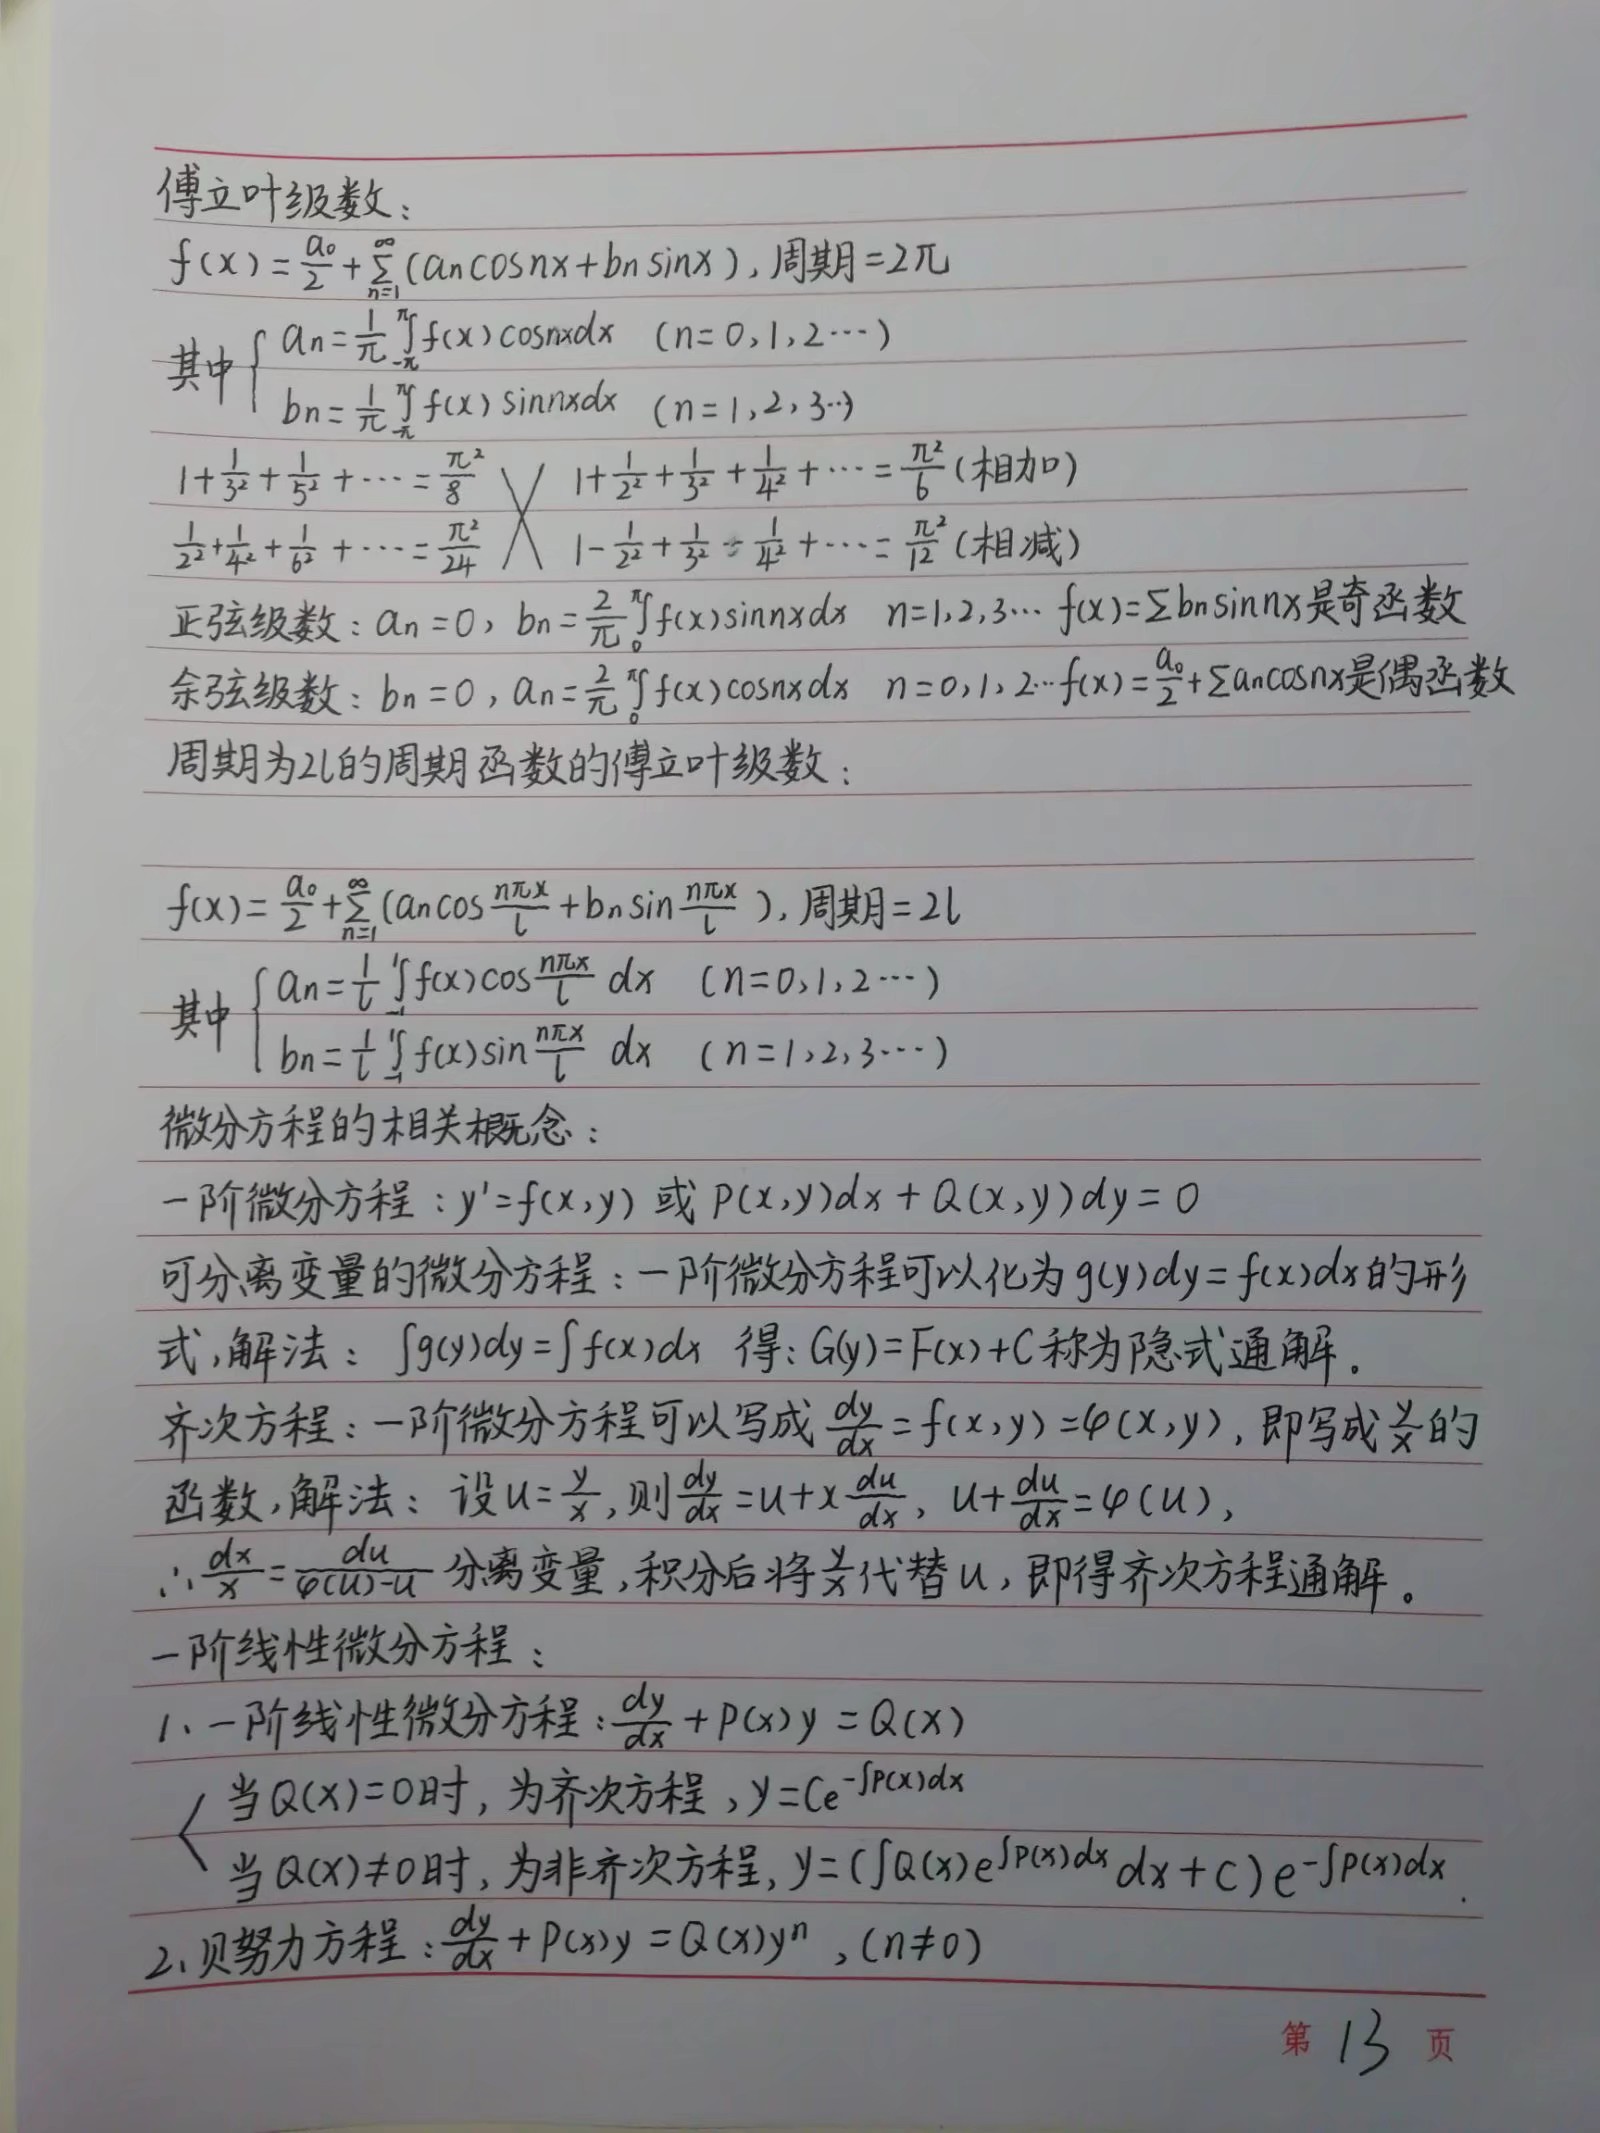 傅立叶级数:
f(x)=a₀/2+∑_{n=1}^{∞}(aₙcosnx+bₙsinx),周期=2π
其中{ aₙ=1/π∫_{-π}^{π}f(x)cosnxdx (n=0,1,2…)
bₙ=1/π∫_{-π}^{π}f(x)sinnxdx (n=1,2,3…)
1+1/3²+1/5²+…=π²/8 1+1/2²+1/3²+1/4²+…=π²/6(相加)
1/2²+1/4²+1/6²+…=π²/24 1-1/2²+1/3²-1/4²+…=π²/12(相减)
正弦级数:aₙ=0,bₙ=2/π∫_{0}^{π}f(x)sinnxdx n=1,2,3… f(x)=∑bₙsinnx是奇函数
余弦级数:bₙ=0,aₙ=2/π∫_{0}^{π}f(x)cosnxdx n=0,1,2…f(x)=a₀/2+∑aₙcosnx是偶函数
周期为2l的周期函数的傅立叶级数:
f(x)=a₀/2+∑_{n=1}^{∞}(aₙcos nπx/l+bₙsin nπx/l),周期=2l
其中{ aₙ=1/l∫_{-l}^{l}f(x)cos nπx/l dx (n=0,1,2…)
bₙ=1/l∫_{-l}^{l}f(x)sin nπx/l dx (n=1,2,3…)
微分方程的相关概念:
一阶微分方程:y'=f(x,y) 或 P(x,y)dx+Q(x,y)dy=0
可分离变量的微分方程:一阶微分方程可以化为g(y)dy=f(x)dx的形
式,解法:∫g(y)dy=∫f(x)dx 得:G(y)=F(x)+C称为隐式通解。
齐次方程:一阶微分方程可以写成dy/dx=f(x,y)=φ(x,y),即写成y/x的
函数,解法:设u=y/x,则dy/dx=u+x du/dx,u+du/dx=φ(u),
∴dx/x=du/(φ(u)-u)分离变量,积分后将y/x代替u,即得齐次方程通解。
一阶线性微分方程:
1、一阶线性微分方程:dy/dx+P(x)y=Q(x)
当Q(x)=0时,为齐次方程,y=Ce^{-∫P(x)dx}
当Q(x)≠0时,为非齐次方程,y=(∫Q(x)e^{∫P(x)dx}dx+C)e^{-∫P(x)dx}.
2、贝努力方程:dy/dx+P(x)y=Q(x)yⁿ,(n≠0)
第 13 页